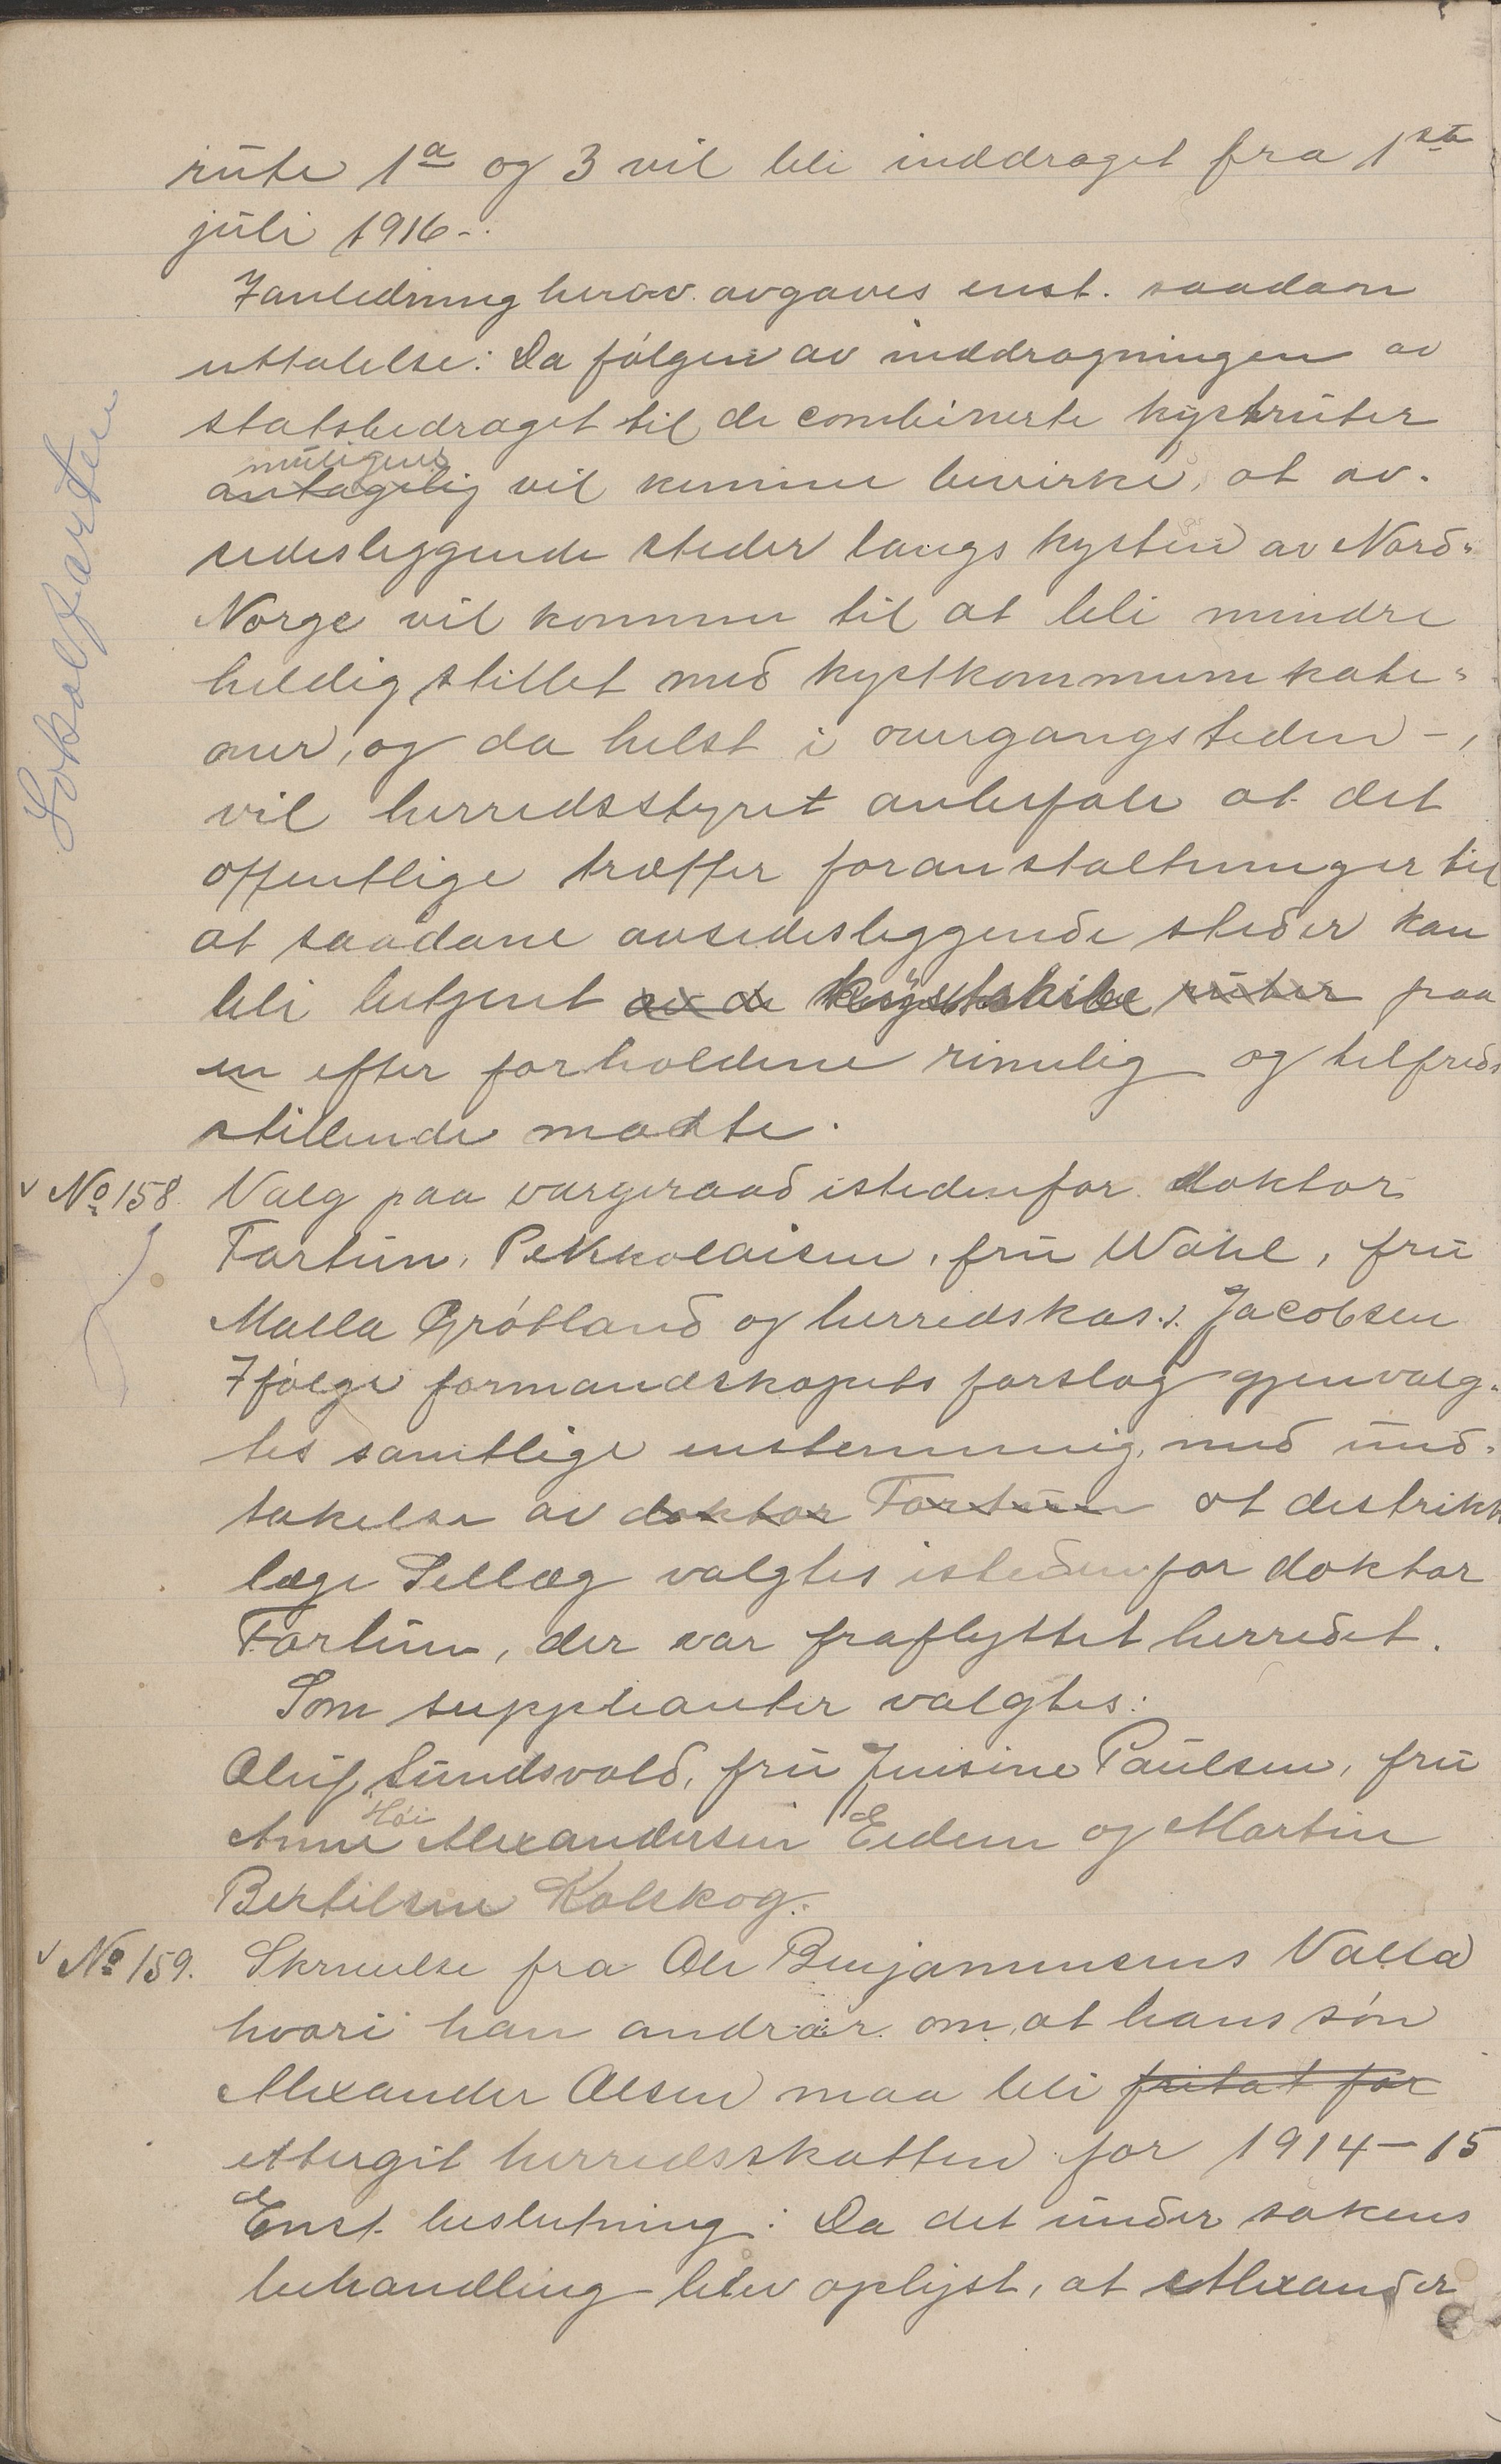 rute 1a og 3 vil bli inddraget fra 1ste
juli 1916-.
I anledning herav avgaves enst. saadan
uttalelse: Da følgen av inddragningen av
statsbedraget til de combinerte kystruter
muligens
antagelig vil kunne bevirke, at av-
sidesliggende steder langs kysten av Nord-
Norge vil komme til at bli mindre
heldig stillet med kystkommunikati-
oner, og da helst i overgangstiden -,
vil herredsstyret anbefale at det
offentlige træffer foranstaltninger til
at saadane avsidesliggende steder kan
bli betjent av de ruter paa
en efter forholdene rimelig og tilfreds
stillende maate.
Lokalfarten
No 158 Valg paa vergeraad istedenfor doktor
Fortun, P. Nikolaisen, fru Wahl, fru
Malla Grøtland og herredskas.s. Jacobsen
Ifølge formandskapets forslag gjenvalg-
tes samtlige enstemmig, med und-
takelse av doktor Fortun at distrikts
læge Sellæg valgtes istedenfor doktor
Fortun, der var fraflyttet herredet.
Som suppleanter valgtes:
Oluf Sundsvold, fru Jensine Paulsen, fru
Høi
Anne Alexandersen Eidem og Martin
Bertilsen Kolskog.
No 159. Skrivelse fra Ole Benjaminsens Valla
hvori han andrar om, at hans søn
Alexander Olsen maa bli fritat for
ettergit herredsskatten for 1914-15
Enst. beslutning: Da det under sakens
behandling blev oplyst, at Alexander